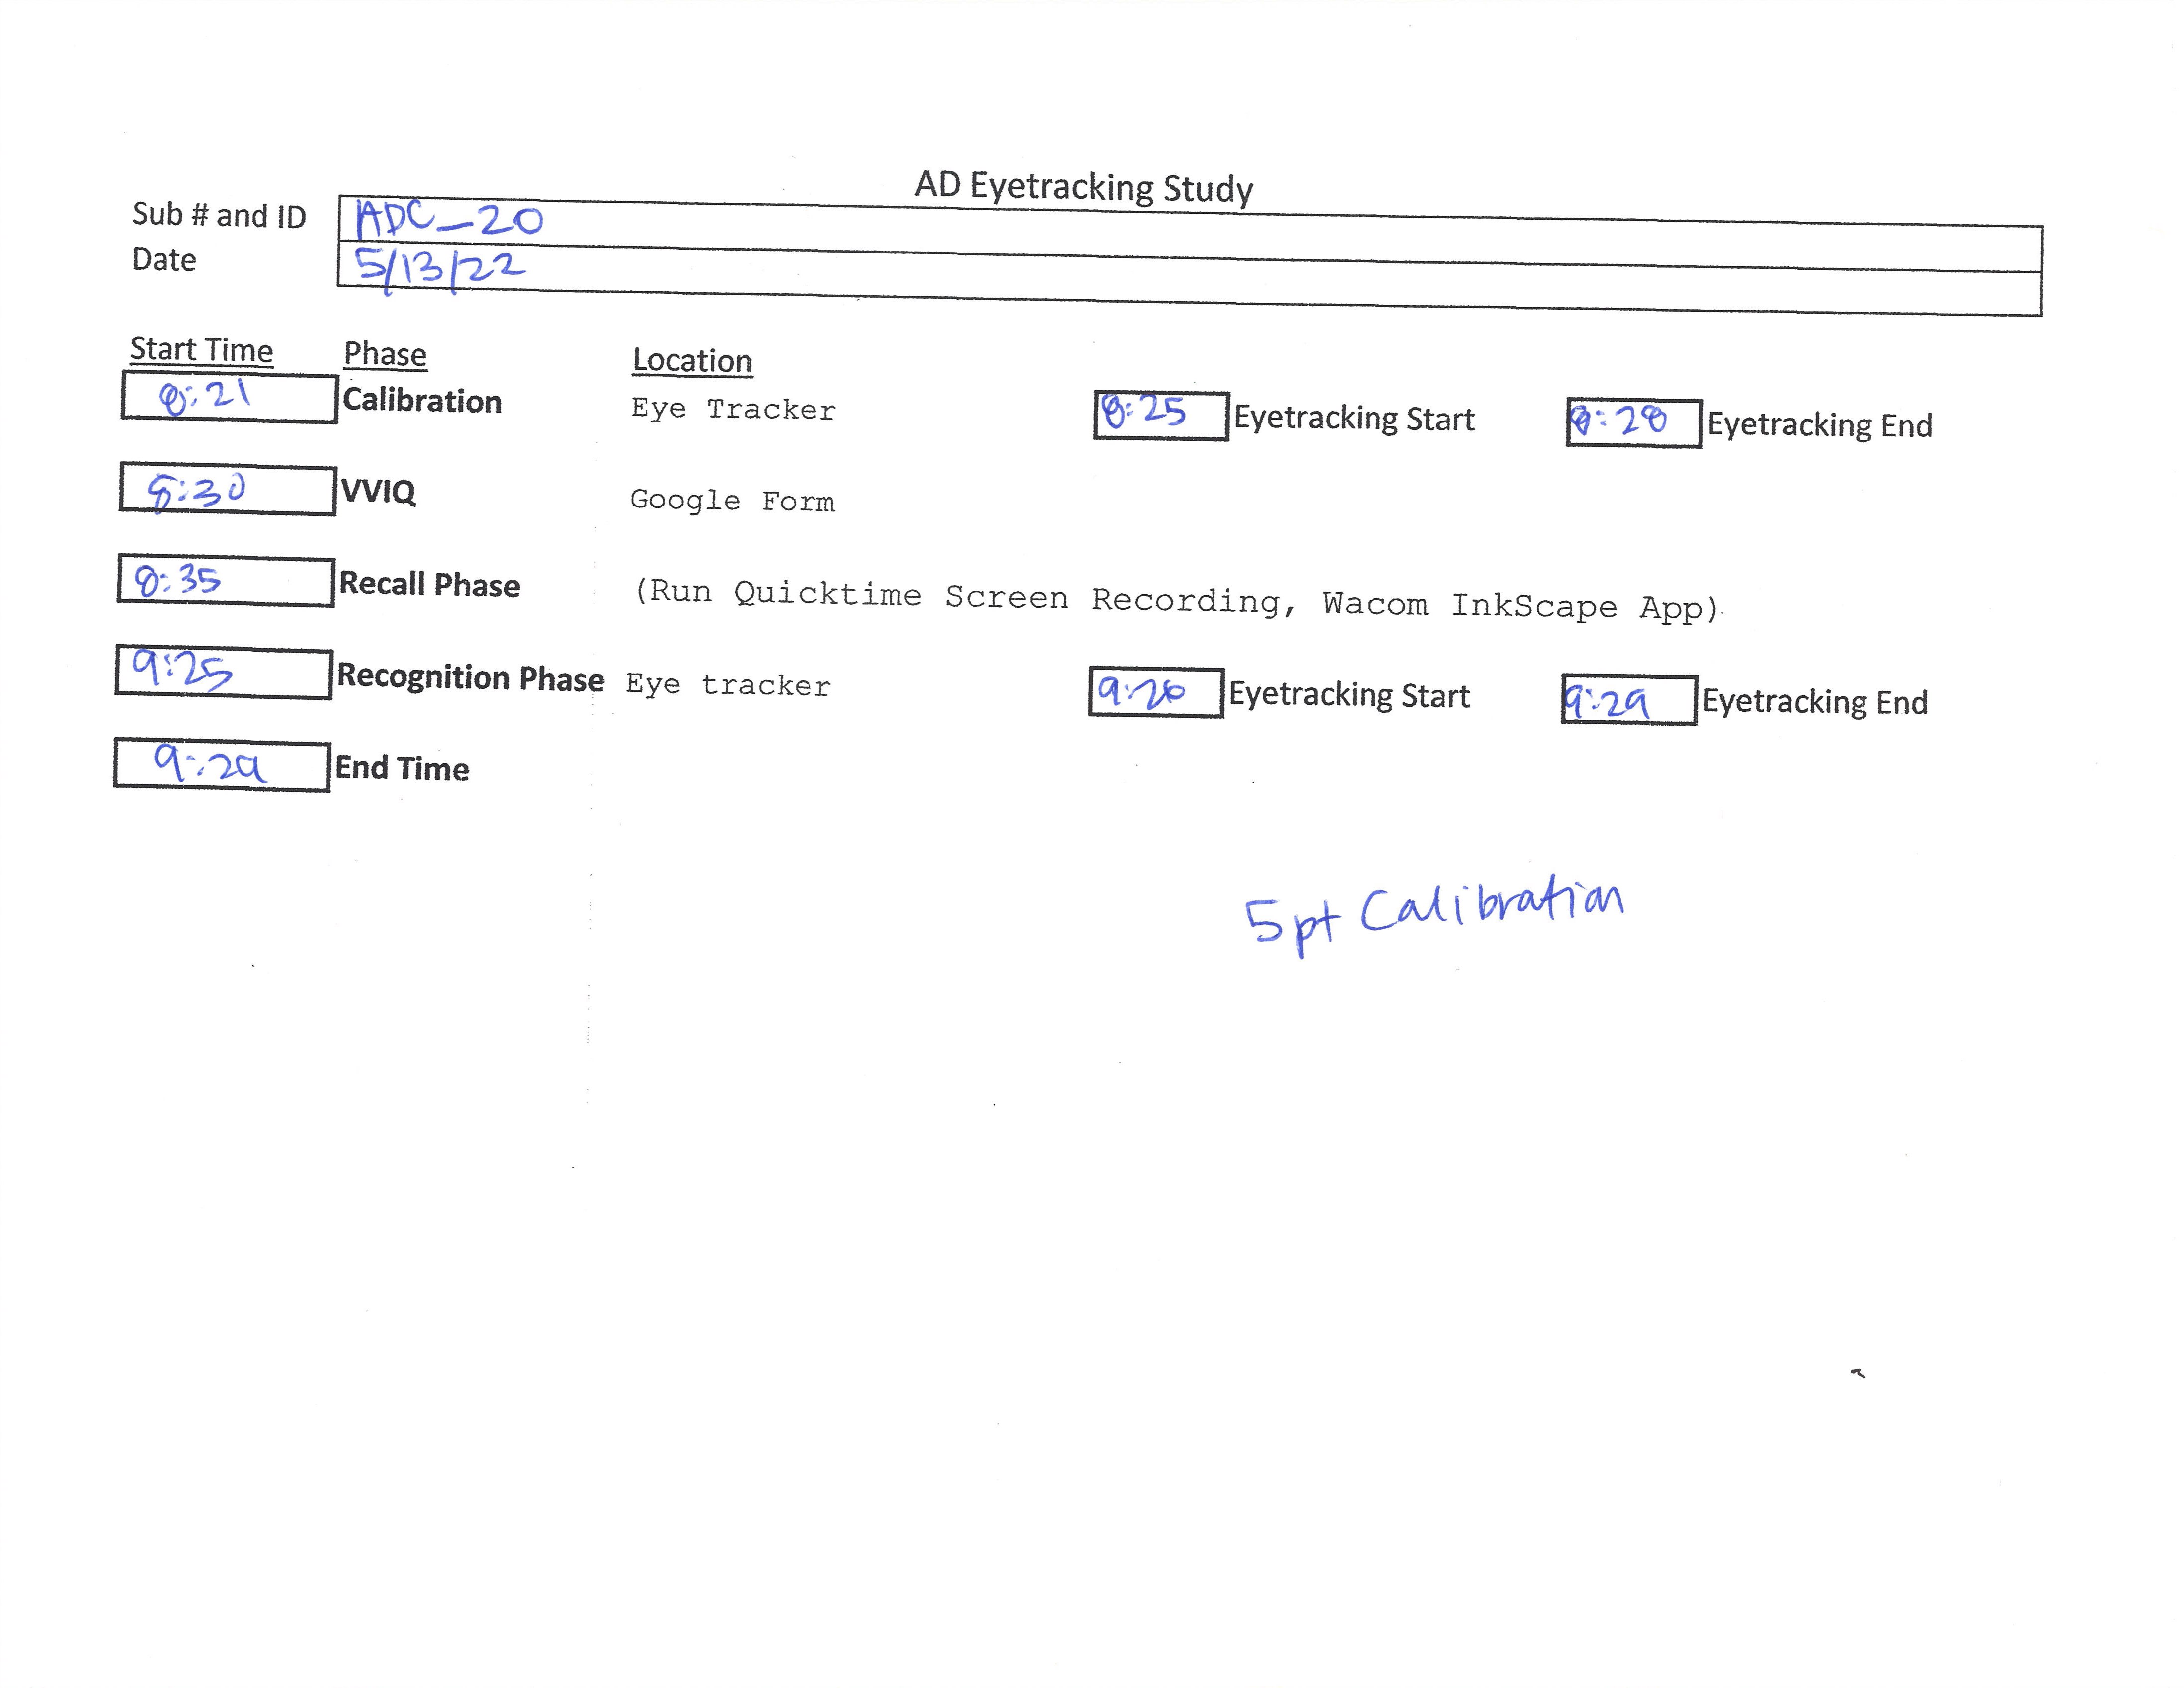 AD Eyetracking Study
Sub # and ID ADC_20
Date 5/13/22
Start Time Phase Location
8:21 Calibration Eye Tracker 8:25 Eyetracking Start 8:28 Eyetracking End
8:30 VVIQ Google Form
8:35 Recall Phase (Run Quicktime Screen Recording, Wacom InkScape App)
9:25 Recognition Phase Eye tracker Eyetracking Start 9:29 Eyetracking End
9:29 End Time
5pt Calibration